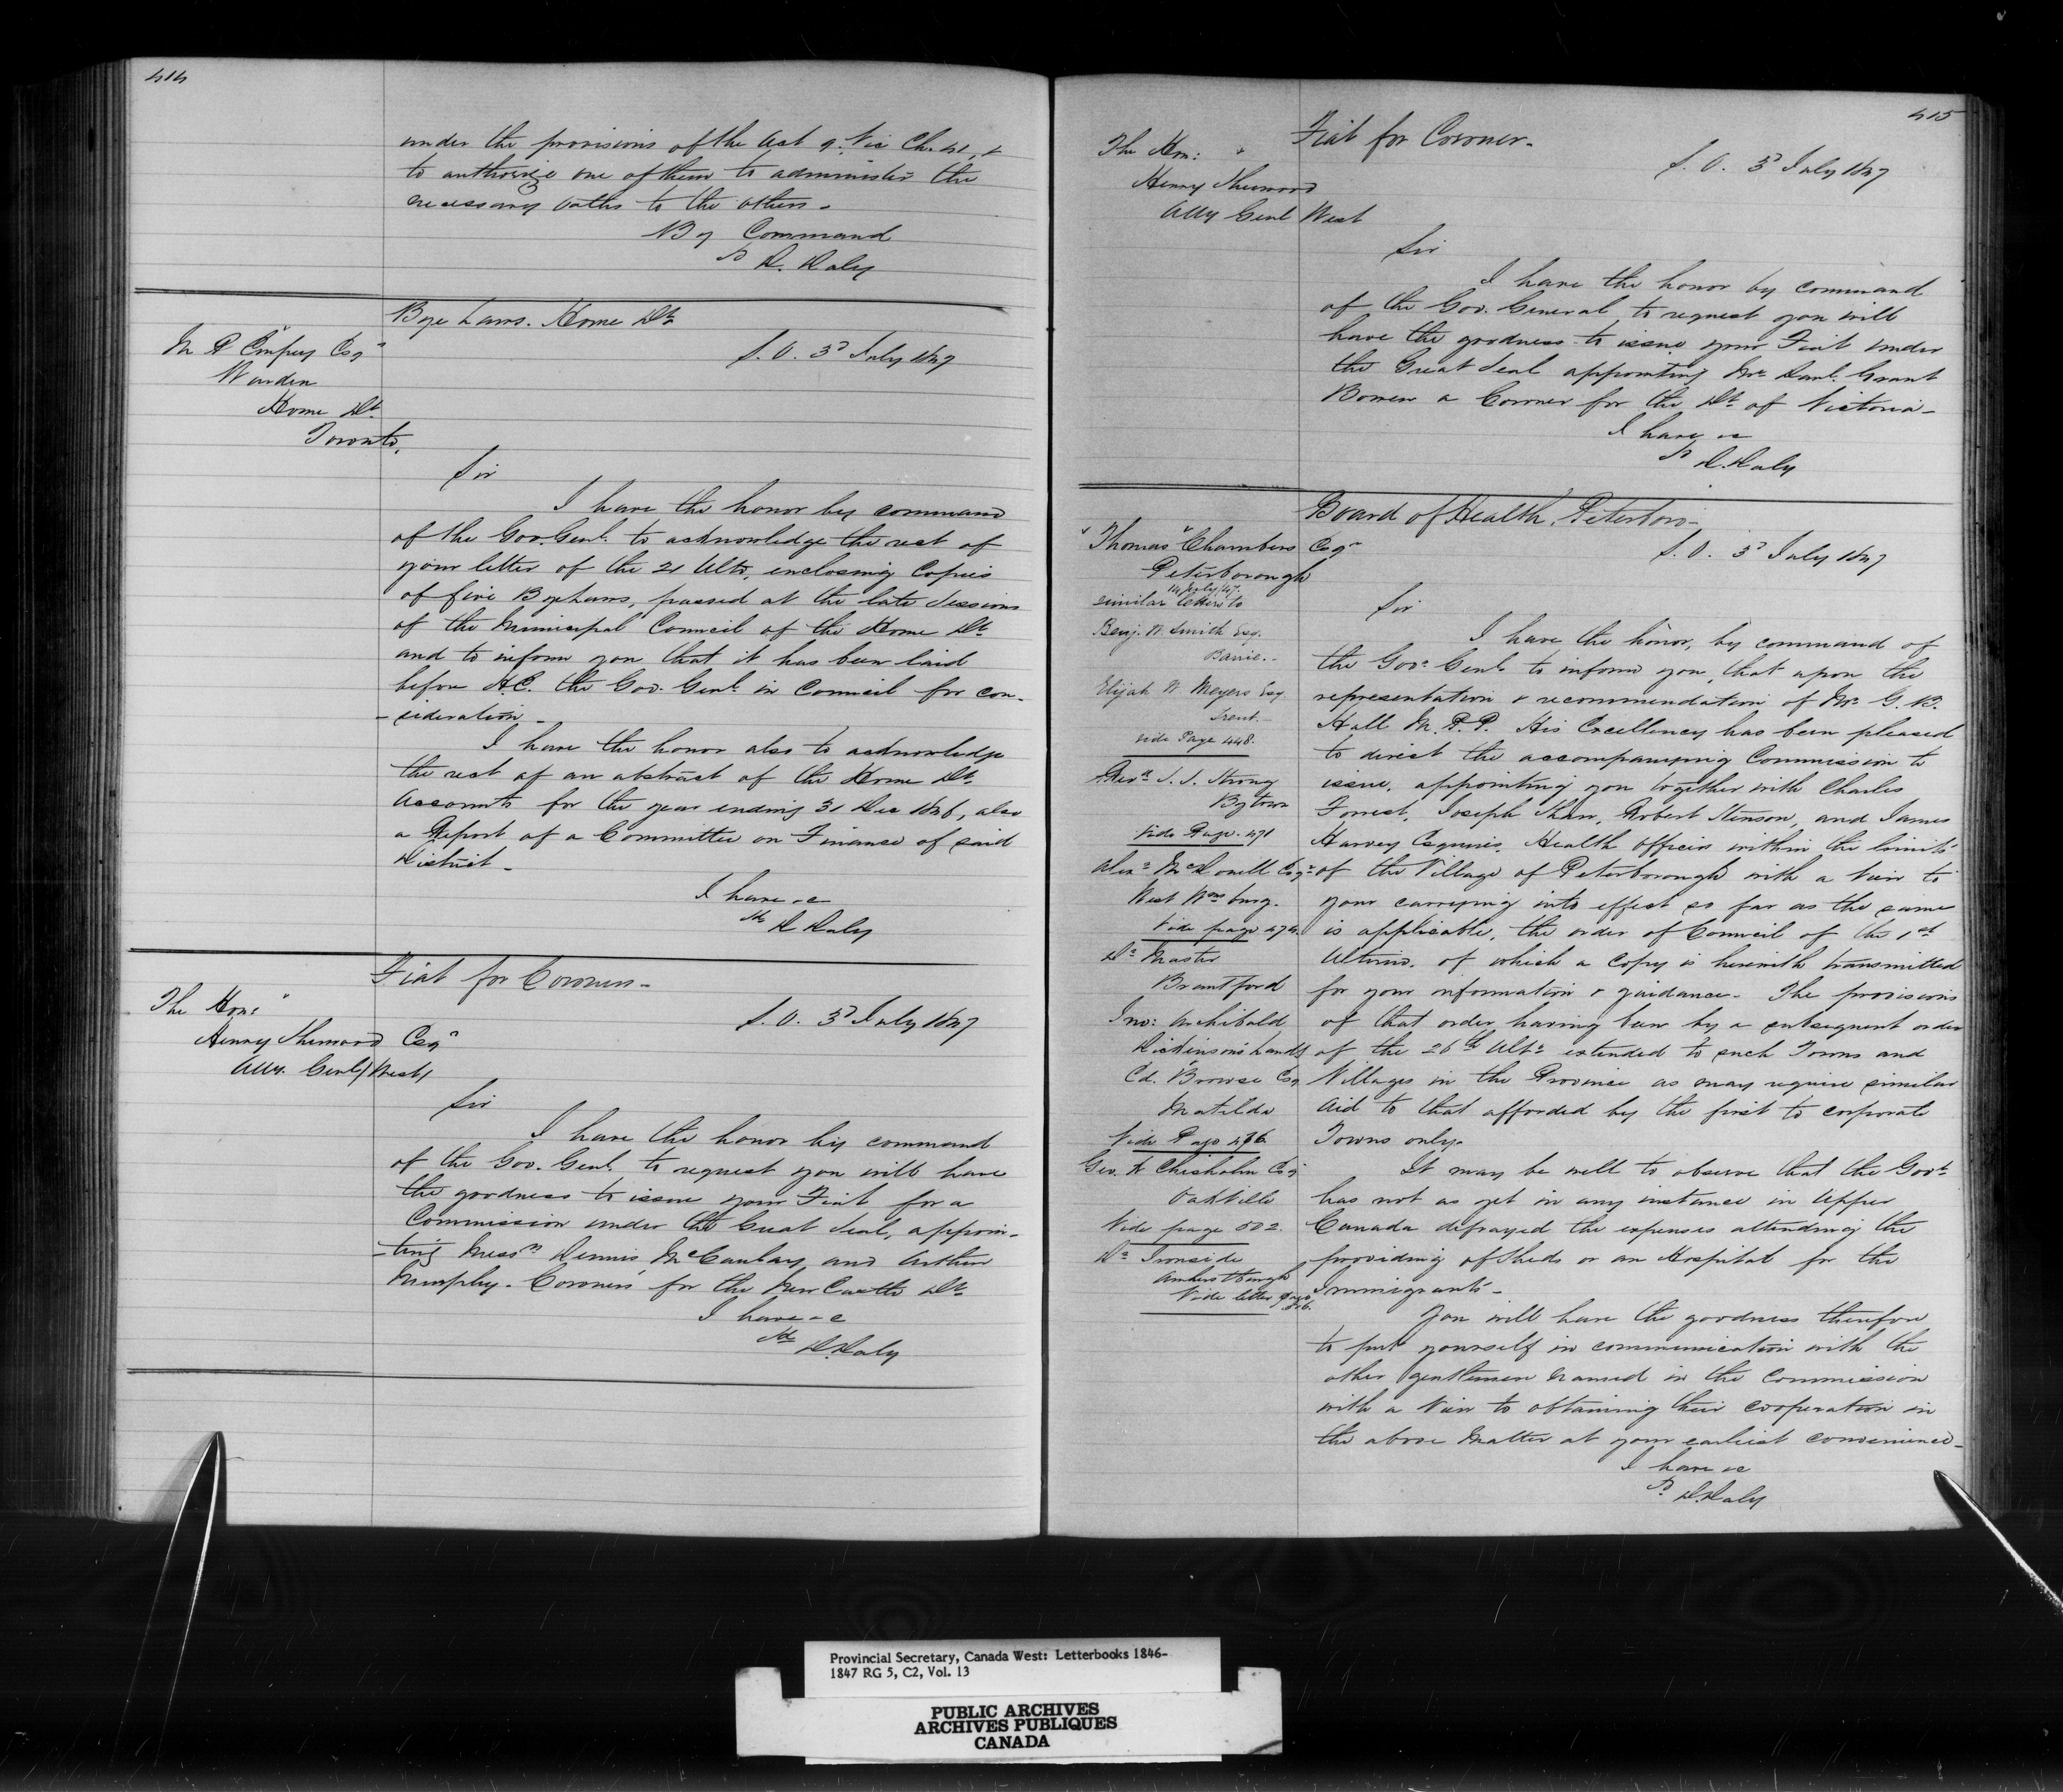 414
under the provisions of the Act 9. Vic Ch. 41, &
to authorize one of them to administer the
necessary oaths to the others.
By Command
D. Daly
Bye Laws. Home Dt.
S. O. 3d July 1847
Esqr
Warden
Home Dt.
Toronto,
Sir
I have the honor by command
of the Gov. Genl. to acknowledge the rect of
your letter of the 21 Ulto, enclosing Copies
of five Bye Laws, passed at the late Sessions
of the Municipal Council of the Home Dt.
and to inform you that it has been laid
before H.E. the Gov. Genl. in Council for con-
-sideration -
I have the honor also to acknowledge
the rect of an abstract of the Home Dt.
Accounts for the year ending 31 Dec 1846, also
a Report of a Committee on Finance of said
District -
I have &c
D Daly
Fiat for Coroners -
The Hon:
Henry Sherwood Esqr
Atty. Genl. West
S. O. 3d July 1847
Sir
I have the honor by command
of the Gov. Genl. to request you will have
the goodness to issue your Fiat for a
Commission under the Great Seal, appoin-
-ting Messrs Dennis McCauley, and Arthur
Murphy. Coroners for the New Castle Dt.
I have &c
D. Daly
415
Fiat for Coroner -
The Hon:
Henry Sherwood
Atty Genl West
S. O. 3d July 1847
Sir
I have the honor by command
of the Gov. General, to request you will
have the goodness to issue your Fiat under
the Great Seal appointing Mr. Danl. Grant
Bowen a Coroner for the Dt. of Victoria -
I have &c
D. Daly
Board of Health, Peterboro -
S. O. 3d July 1847
Thomas Chambers Esqr
Peterborough
14 July/47.
similar letters to
Benj. W. Smith Esq.
Barrie. -
Elijah W. Meyers Esq
Trent. -
vide Page 448.
Revd. S. S. Strong
Bytown
Vide Page. 471
Alexr. McDonell Esqr
West Wms burg.
Vide page 474.
Dr. Master
Brantford
Jno: Archibald
Dickinson's Landg
Ed. Browse Esq
Matilda
Vide Page 476
Geo. K Chisholm Esq
Oakville
Vide page 502.
Dr. Ironside
Amherstburgh
Vide letter page
Sir
I have the honor, by command of
the Govr. Genl. to inform you, that upon the
representation & recommendation of Mr. G. B.
Hall M. P. P. His Excellency has been pleased
to direct the accompanying Commission to
issue, appointing you together with Charles
Forrest, Joseph Shaw, Robert Stenson, and James
Harvey Esquires, Health officers within the limits
of the Village of Peterborough with a View to
your carrying into effect so far as the same
is applicable, the order of Council of the 1st
Ultimo. of which a Copy is herewith transmitted
for your information & guidance - The provisions
of that order having been by a subsequent order
of the 26th Ulto. extended to such Towns and
Villages in the Province as may require similar
Aid to that afforded by the first to corporate
Towns only.
It may be well to observe that the Govt.
has not as yet in any instance in Upper
Canada defrayed the expenses attending the
providing of Sheds or an Hospital for the
Immigrants -
You will have the goodness therefore
to put yourself in communication with the
other gentlemen named in the Commission
with a View to obtaining their cooperation in
the above Matter at your earliest convenience -
I have &c
D. Daly
Provincial Secretary, Canada West: Letterbooks 1846-
1847 RG 5, C2, Vol. 13
PUBLIC ARCHIVES
ARCHIVES PUBLIQUES
CANADA